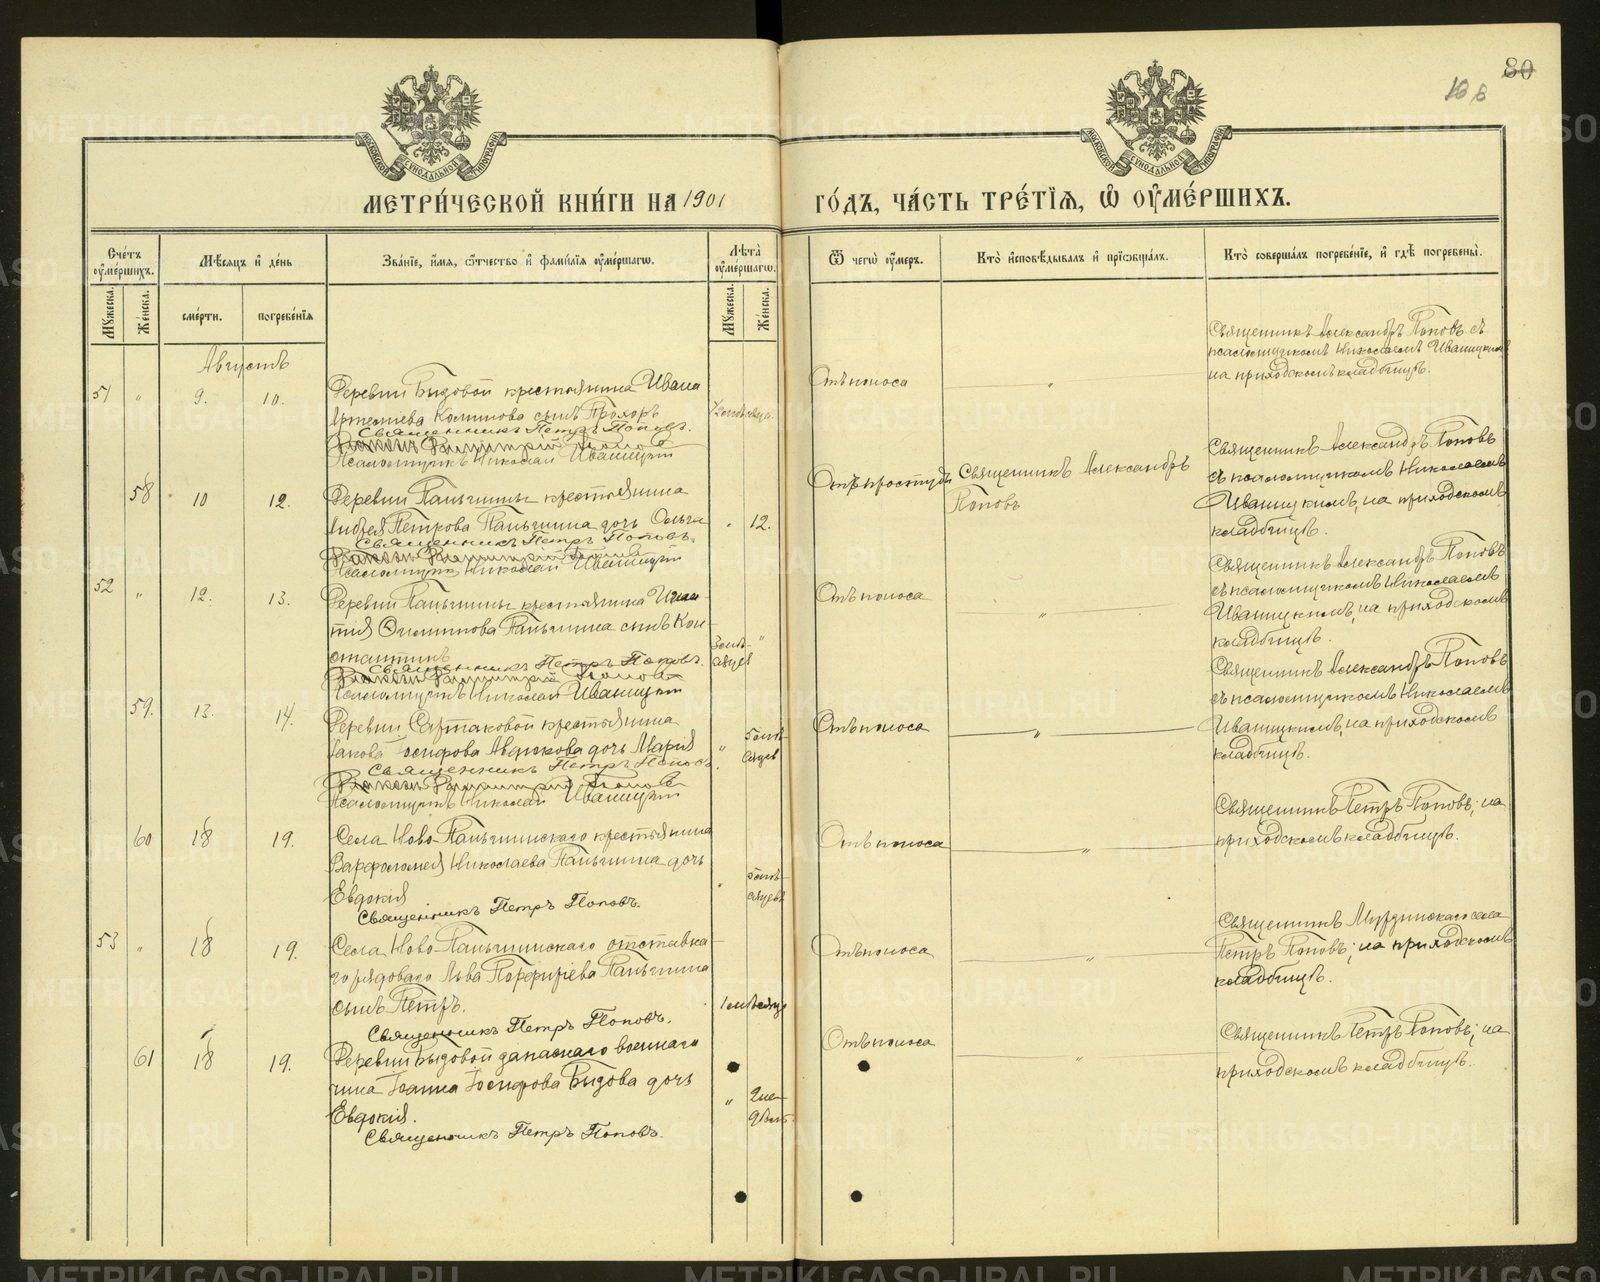 80
МОСКОВСКОЙ СѴНОДАЛЬНОЙ ТИПОГРАФІИ
МОСКОВСКОЙ СѴНОДАЛЬНОЙ ТИПОГРАФІИ
МЕТРИ́ЧЕСКОЙ КНИ́ГИ НА 1901 ГО́ДЪ, ЧА́СТЬ ТРЕ́ТІѦ, Ѡ҆ ОУ҆МЕ́РШИХЪ.
Сче́тъ оу҆ме́ршихъ.
Мꙋжеска.
Же́нска.
Мѣ́сяцъ и҆ де́нь
сме́рти.
погребе́нія
Зва́ніе, и҆́мя, ѻ҆́тчество и҆ фами́лія оу҆ме́ршагѡ.
Лѣ́та оу҆ме́ршагѡ.
Мꙋжеска.
Же́нска.
Ѿ чегѡ̀ оу҆́меръ.
Кто̀ и҆сповѣ́дывалъ и҆ прїѡбща́лъ.
Кто̀ соверша́лъ погребе́ніе, и҆ гдѣ̀ погребены̀.
Августъ
51 " 9. 10. Деревни Быдовой крестьянина Ивана
Артемiева сынъ Прохоръ
Священникъ Петръ Поповъ.
Псаломщикъ Николай Иваницкiй
Отъ поноса "
Священникъ Александръ Поповъ съ
псаломщикомъ Николаемъ Иваницкимъ
на приходскомъ кладбищѣ.
58 10 12. Деревни Паньшины крестьянина
Андрея Петрова Паньшина дочь Ольга " 12.
Священникъ Петръ Поповъ.
Псаломщикъ Николай Иваницкiй
Отъ простуды
Священникъ Александръ
Поповъ
Священникъ Александръ Поповъ
съ псаломщикомъ Николаемъ
Иваницкимъ, на приходскомъ
кладбищѣ.
52 " 12. 13. Деревни Паньшины крестьянина Игна-
тiя Филиппова Паньшина сынъ Кон-
стантинъ 3 мѣ- "
сяцев
Священникъ Петръ Поповъ.
Псаломщикъ Николай Иваницкiй
Отъ поноса "
Священникъ Александръ Поповъ
съ псаломщикомъ Николаемъ
Иваницкимъ, на приходскомъ
кладбищѣ.
59. 13. 14. Деревни Сартаковой крестьянина
Iакова Iосифова дочь Марiя " 5 мѣ-
сяцев
Священникъ Петръ Поповъ.
Псаломщикъ Николай Иваницкiй
Отъ поноса "
Священникъ Александръ Поповъ
съ псаломщикомъ Николаемъ
Иваницкимъ, на приходскомъ
кладбищѣ.
60 18 19. Села Ново-Паньшинскаго крестьянина
Варфоломея Николаева Паньшина дочь
Евдокiя " 5 мѣ-
сяцевъ
Священникъ Петръ Поповъ.
Отъ поноса "
Священникъ Петръ Поповъ; на
приходскомъ кладбищѣ.
53 " 18 19. Села Ново-Паньшинскаго отставна-
го рядоваго Льва Порфирiева Паньшина
сынъ Петръ. 1 мѣсяцъ
Священникъ Петръ Поповъ.
Отъ поноса "
Священникъ села
Петръ Поповъ; на приходскомъ
кладбищѣ.
61 18 19. Деревни Быдовой запаснаго военнаго
чина Iоанна Iосифова Быдова дочь
Евдокiя. " 2 не-
дѣли
Священникъ Петръ Поповъ.
Отъ поноса "
Священникъ Петръ Поповъ; на
приходскомъ кладбищѣ.
METRIKI.GASO-URAL.RU